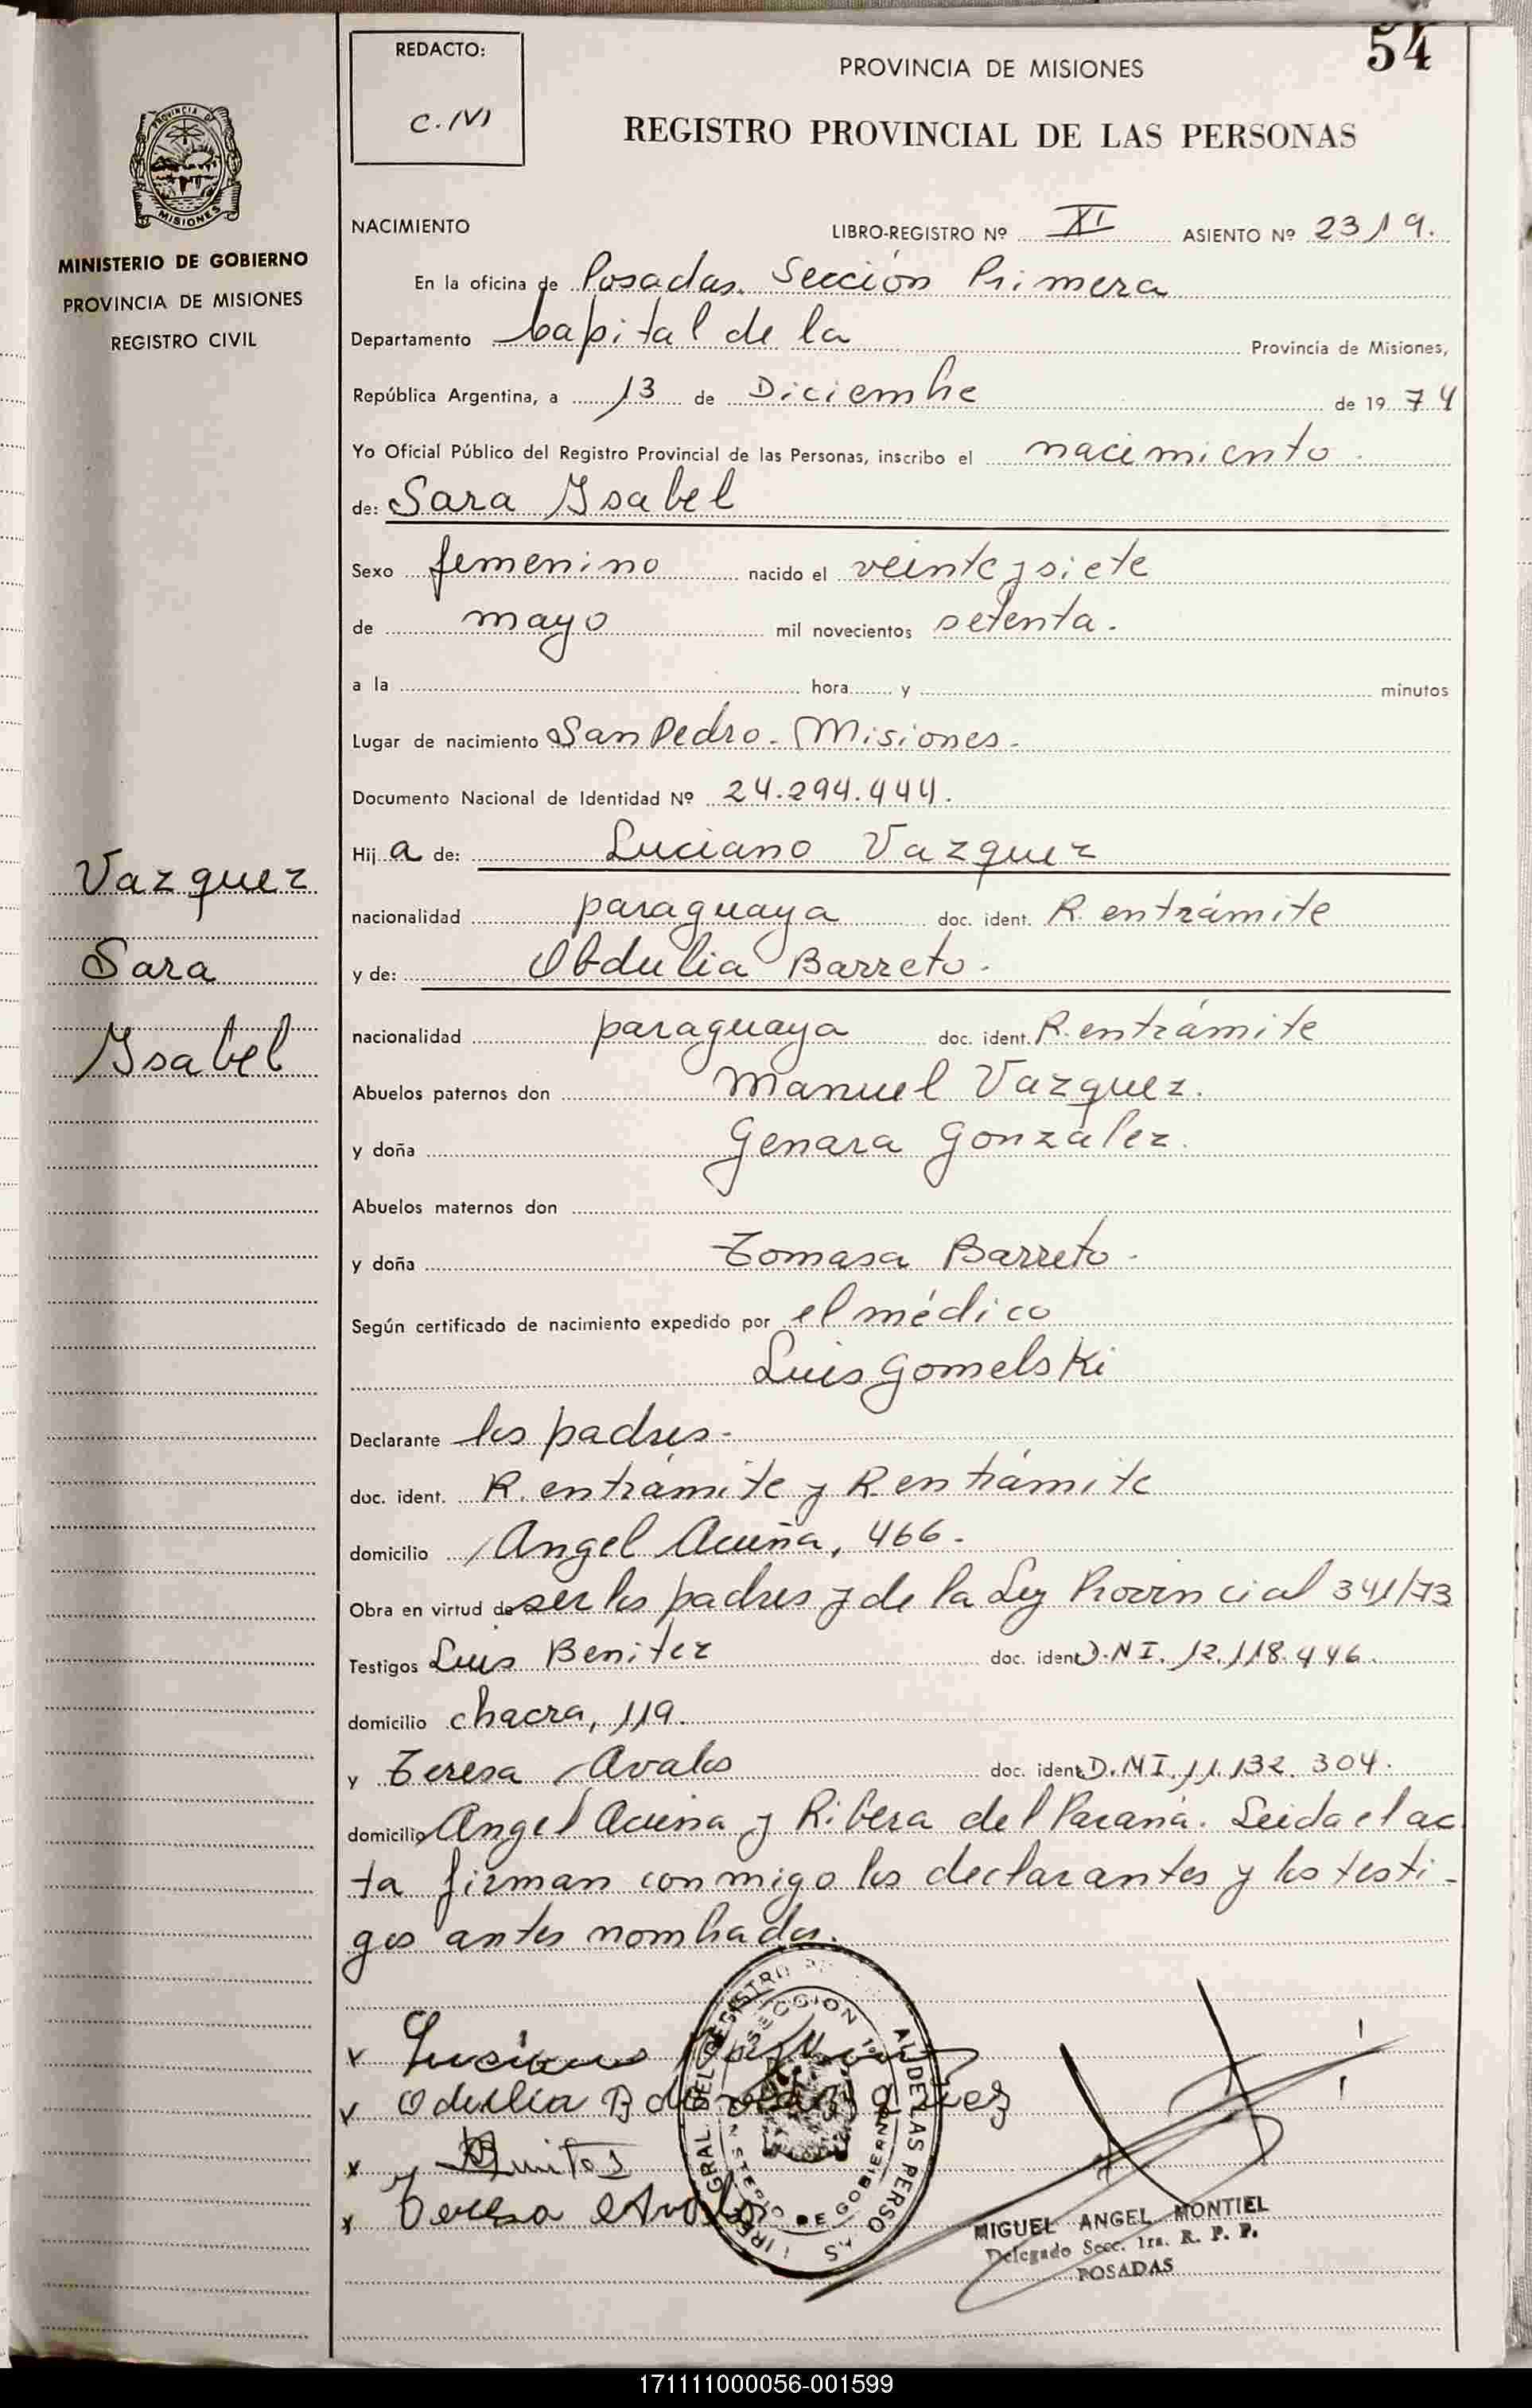 54
REDACTO:
C.IVI
PROVINCIA DE MISIONES
REGISTRO PROVINCIAL DE LAS PERSONAS
PROVINCIA D
MISIONES
MINISTERIO DE GOBIERNO
PROVINCIA DE MISIONES
REGISTRO CIVIL
NACIMIENTO LIBRO-REGISTRO Nº XI ASIENTO Nº 2319.
En la oficina de Posadas. Sección Primera
Departamento Capital de la Provincia de Misiones,
República Argentina, a 13 de Diciembre de 1974
Yo Oficial Público del Registro Provincial de las Personas, inscribo el nacimiento.
de: Sara Ysabel
Sexo femenino nacido el veinte y siete
de mayo mil novecientos setenta.
a la hora y minutos
Lugar de nacimiento San Pedro. Misiones.
Documento Nacional de Identidad Nº 24.294.444.
Hija de: Luciano Vazquez
nacionalidad paraguaya doc. ident. R. entrámite
y de: Obdulia Barreto.
nacionalidad paraguaya doc. ident. R. entrámite
Abuelos paternos don Manuel Vazquez.
y doña Genara González.
Abuelos maternos don
y doña Tomasa Barreto.
Según certificado de nacimiento expedido por el médico
Luis Gomelski
Declarante los padres.
doc. ident. R. entrámite y R. entrámite
domicilio Angel Acuña, 466.
Obra en virtud de ser los padres y de la Ley Provincial 341/73
Testigos Luis Benitez doc. ident D.N I. 12.118.446.
domicilio chacra, 119.
y Teresa Avalos doc. ident D.N I. 11.132.304.
domicilio Angel Acuña y Ribera del Paraná. Leida el ac
ta firman conmigo los declarantes y los testi-
gos antes nombrados.
Vazquez
Sara
Ysabel
Luciano
Odulia B de Vazquez
Benites
Teresa Avalos
SECCION 1ª
DE GOBIERNO
MIGUEL ANGEL MONTIEL
Delegado Secc. 1ra. R. P. P.
POSADAS
171111000056-001599